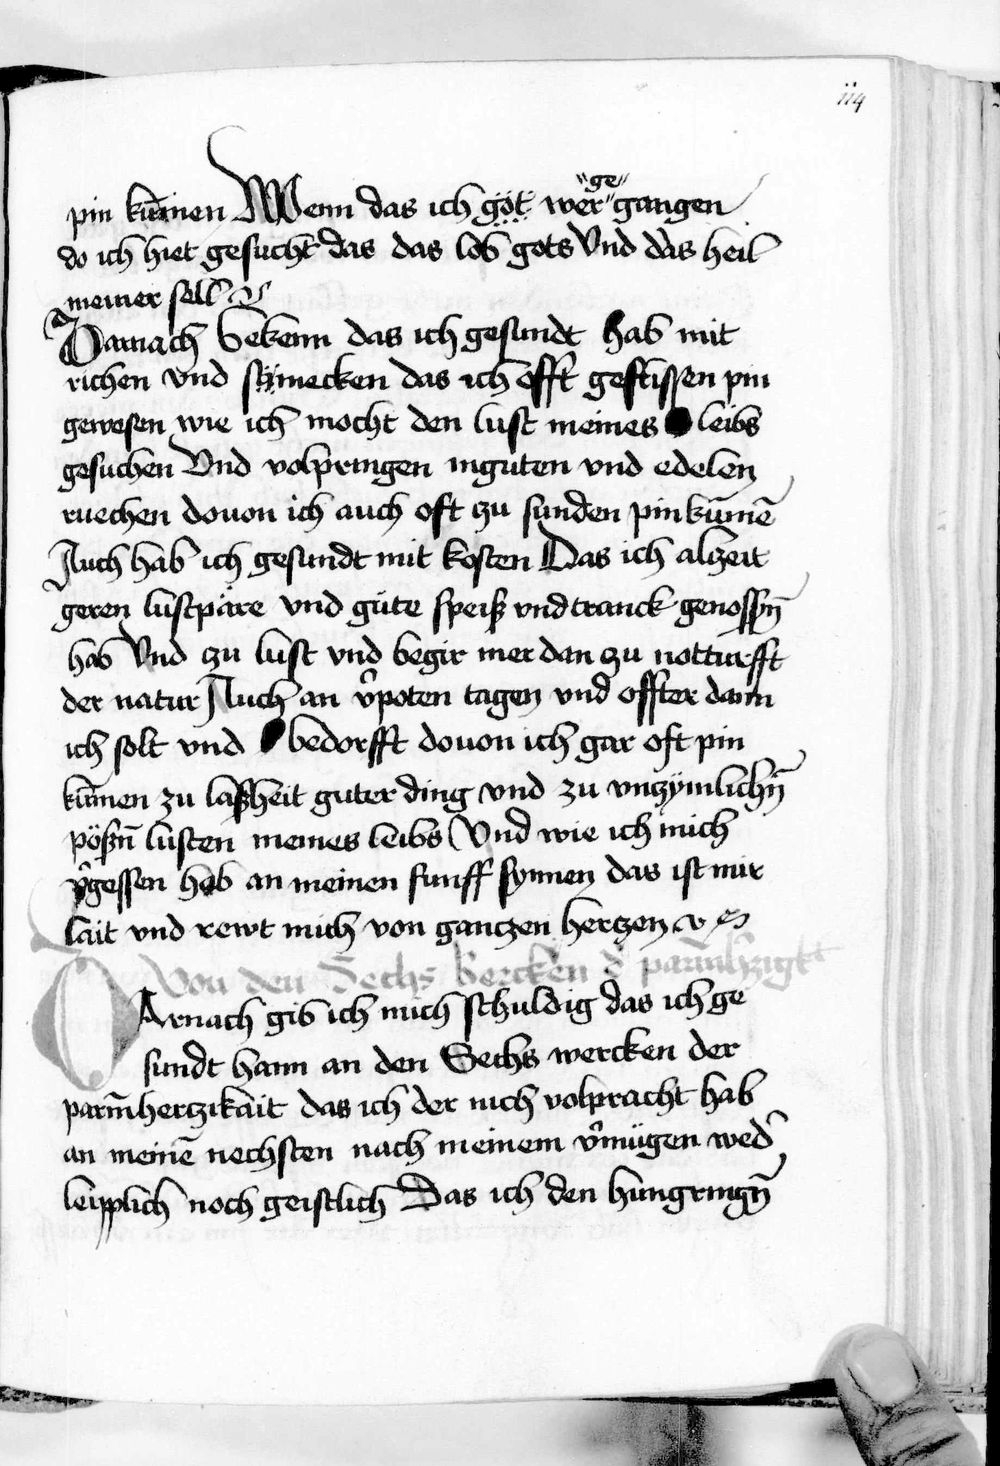 114
pin kūmen Wenn das ich göt wer "ge" gangen
do ich hiet gesucht das das lob gots Vnd das heil
meiner sell
Darnach bekenn das ich gesundt hab mit
richen vnd schmecken das ich offt geflissen pin
gewesen wie ich mocht den lust meines leibs
gesuchen Vnd volpringen inguten vnd edelen
ruechen douon ich auch oft zu sunden pin kūmē
Auch hab ich gesundt mit kosten Das ich alzeit
geren lustpäre vnd güte speiß vnd tranck genossn̄
hab Vnd zu lust vnd begir mer dan zu notturfft
der natur Auch an v̓poten tagen vnd offter dann
ich solt vnd bedorfft douon ich gar oft pin
kūmen zu laßheit guter ding vnd zu vnzymlichn̄
pößn̄ lusten meines leibs Vnd wie ich mich
v̓gessen hab an meinen funff synnen das ist mir
lait vnd rewt mich von gantzen hertzen
Von den Sechs wercken d̓ parm̄hzigkt
DArnach gib ich mich schuldig das ich ge
sundt hann an den Sechs wercken der
parm̄hertzikait das ich der nich volpracht hab
an meinē nechsten nach meinem v̓mügen wed̓
leipplich noch geistlich Das ich den hungringn̄